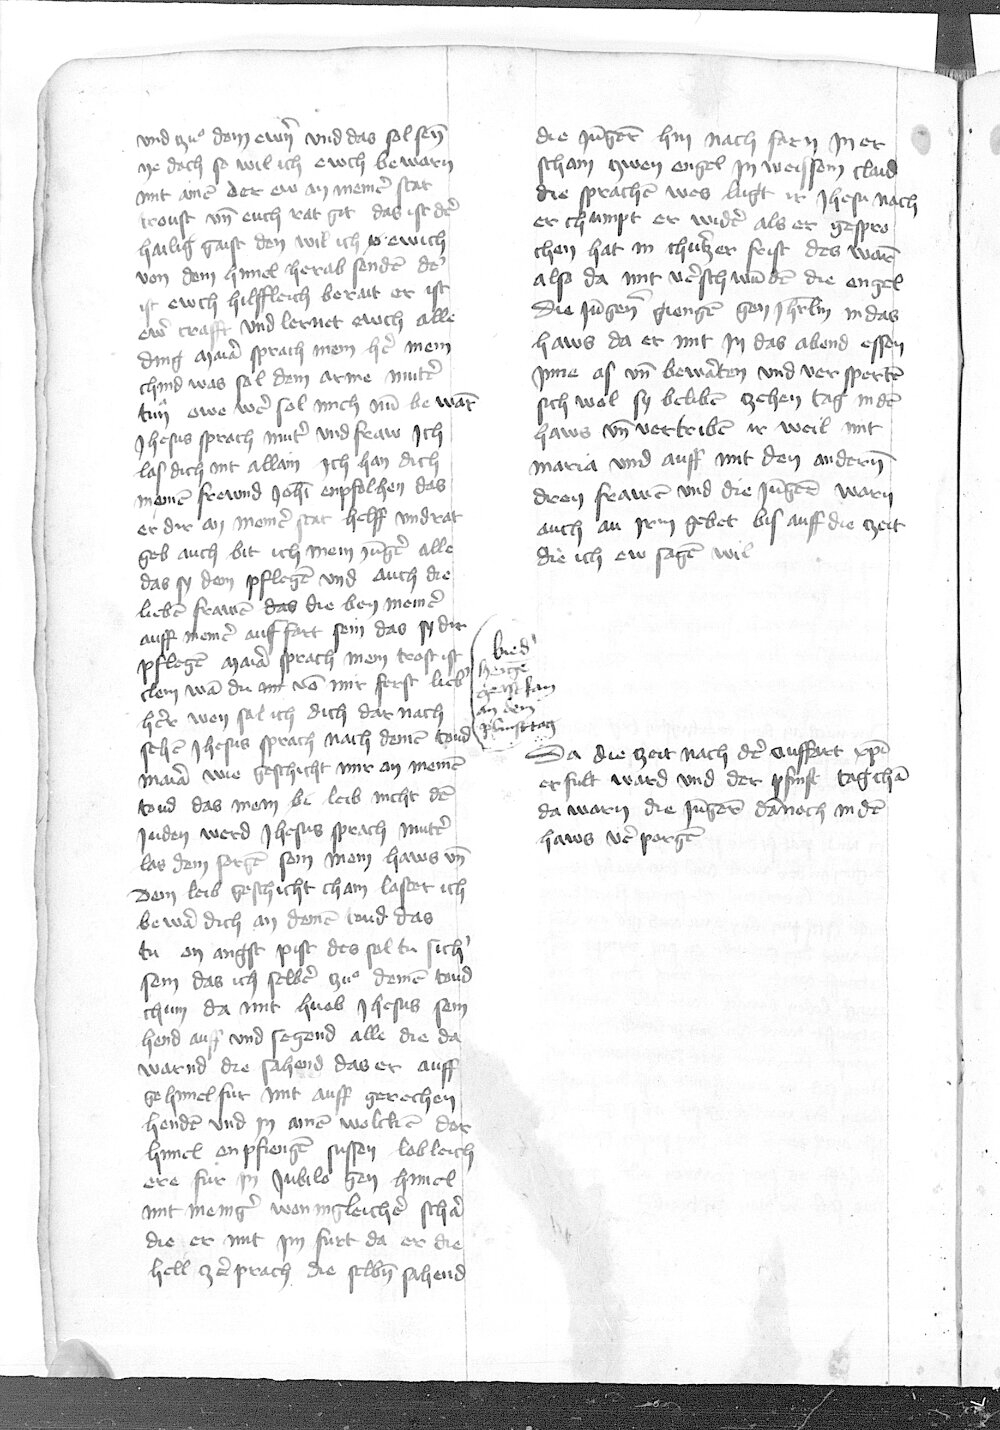 vnd zuͦ dem ewñ vnd das sol sein̄
ye doch so wil ich ewch bewarn
mit aine᷑ der ew an meine᷑ stat
troust vn̄ euch rat git das ist de᷑
hailig gaist den wil ich ewich
von dem himel herab senden̄ de᷑
ist ewch hilffleich berait er ist
ewe᷑ crafft vnd lernet ewch alle
ding maria᷑ sprach mein he᷑ mein
chind was sol dein arme mute᷑
tun owe we᷑ sol mich nu᷑ bewarn̄
Jhesus sprach mute᷑ vnd fraw Ich
las dich nit allain Ich han dich
meinē frewnd Joh̄i enpfolhen das
er dir an meine᷑ stat helff vnd rat
geb auch bit ich mein Jūge᷑ alle
das sy dein pflegē vnd auch die
liebē frawē das die bey meine᷑
auff meine᷑ auffart sein das sy dir
pflegē maria᷑ sprach mein trost ist
clein wā du nit vō mir ferst lieb᷑
he᷑r wen sol ich dich dar nach
sehē Jhesus sprach nach deinē toud
maria᷑ wie geschicht mir an meinē
toud das mein leib nicht dē
Juden werd Jhesus sprach mute᷑
las dein sorgē sein mein haws vn̄
dein leib geschicht cham laster ich
bewa᷑ dich an deinē toud das
tu on angst pist des sol tu sich᷑
sein das ich selbe᷑ zuͦ deinē toud
chum da mit hueb Jhesus sein
hend auff vnd segend alle die da
warnd die sahend das er auff
ge himel fur mit auff gerechen
hendē vnd in ainē wolckē der
himel enpfiengē sussen lobleich
ere fur in Jubilo gen himel
mit menige᷑ wonnigleiche᷑ scha᷑
die er mit im furt da er die
hell ze᷑prach die selbn̄ sahend
die Jūgern̄ hin nach farn in er
scham zwen engel in weissem claid
die sprachē wes lugt ir Jhesu nach
er chumpt er wide᷑ als er gespro
chen hat in churtzer frist des warn̄
also da mit ve᷑schwūdē die engel
die Jūgern̄ giengē gen Jhrlm in das
haws da er mit In das abend essen
Inne as vn̄ bewartē vnd versperrtē
sich wol sy belibē zehen tag in dē
haws vn̄ vertribē ir weil mit
maria vnd auff mit den andern̄
dren frawē vnd die Jūgern̄ warn
auch an irm gebet bis auff die zeit
die ich ew sagē wil
hie d᷑
heilige
geist kam
an dem
pfinstag
Da die zeit nach de᷑ auffart xpī
erfult ward vnd der pfinst tag chā
da warn die Jūgern̄ dānoch in dē
haws ve᷑porgē